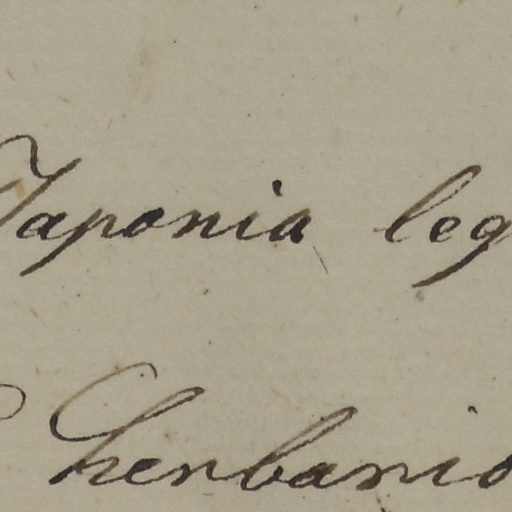 Japonia leg
herbario